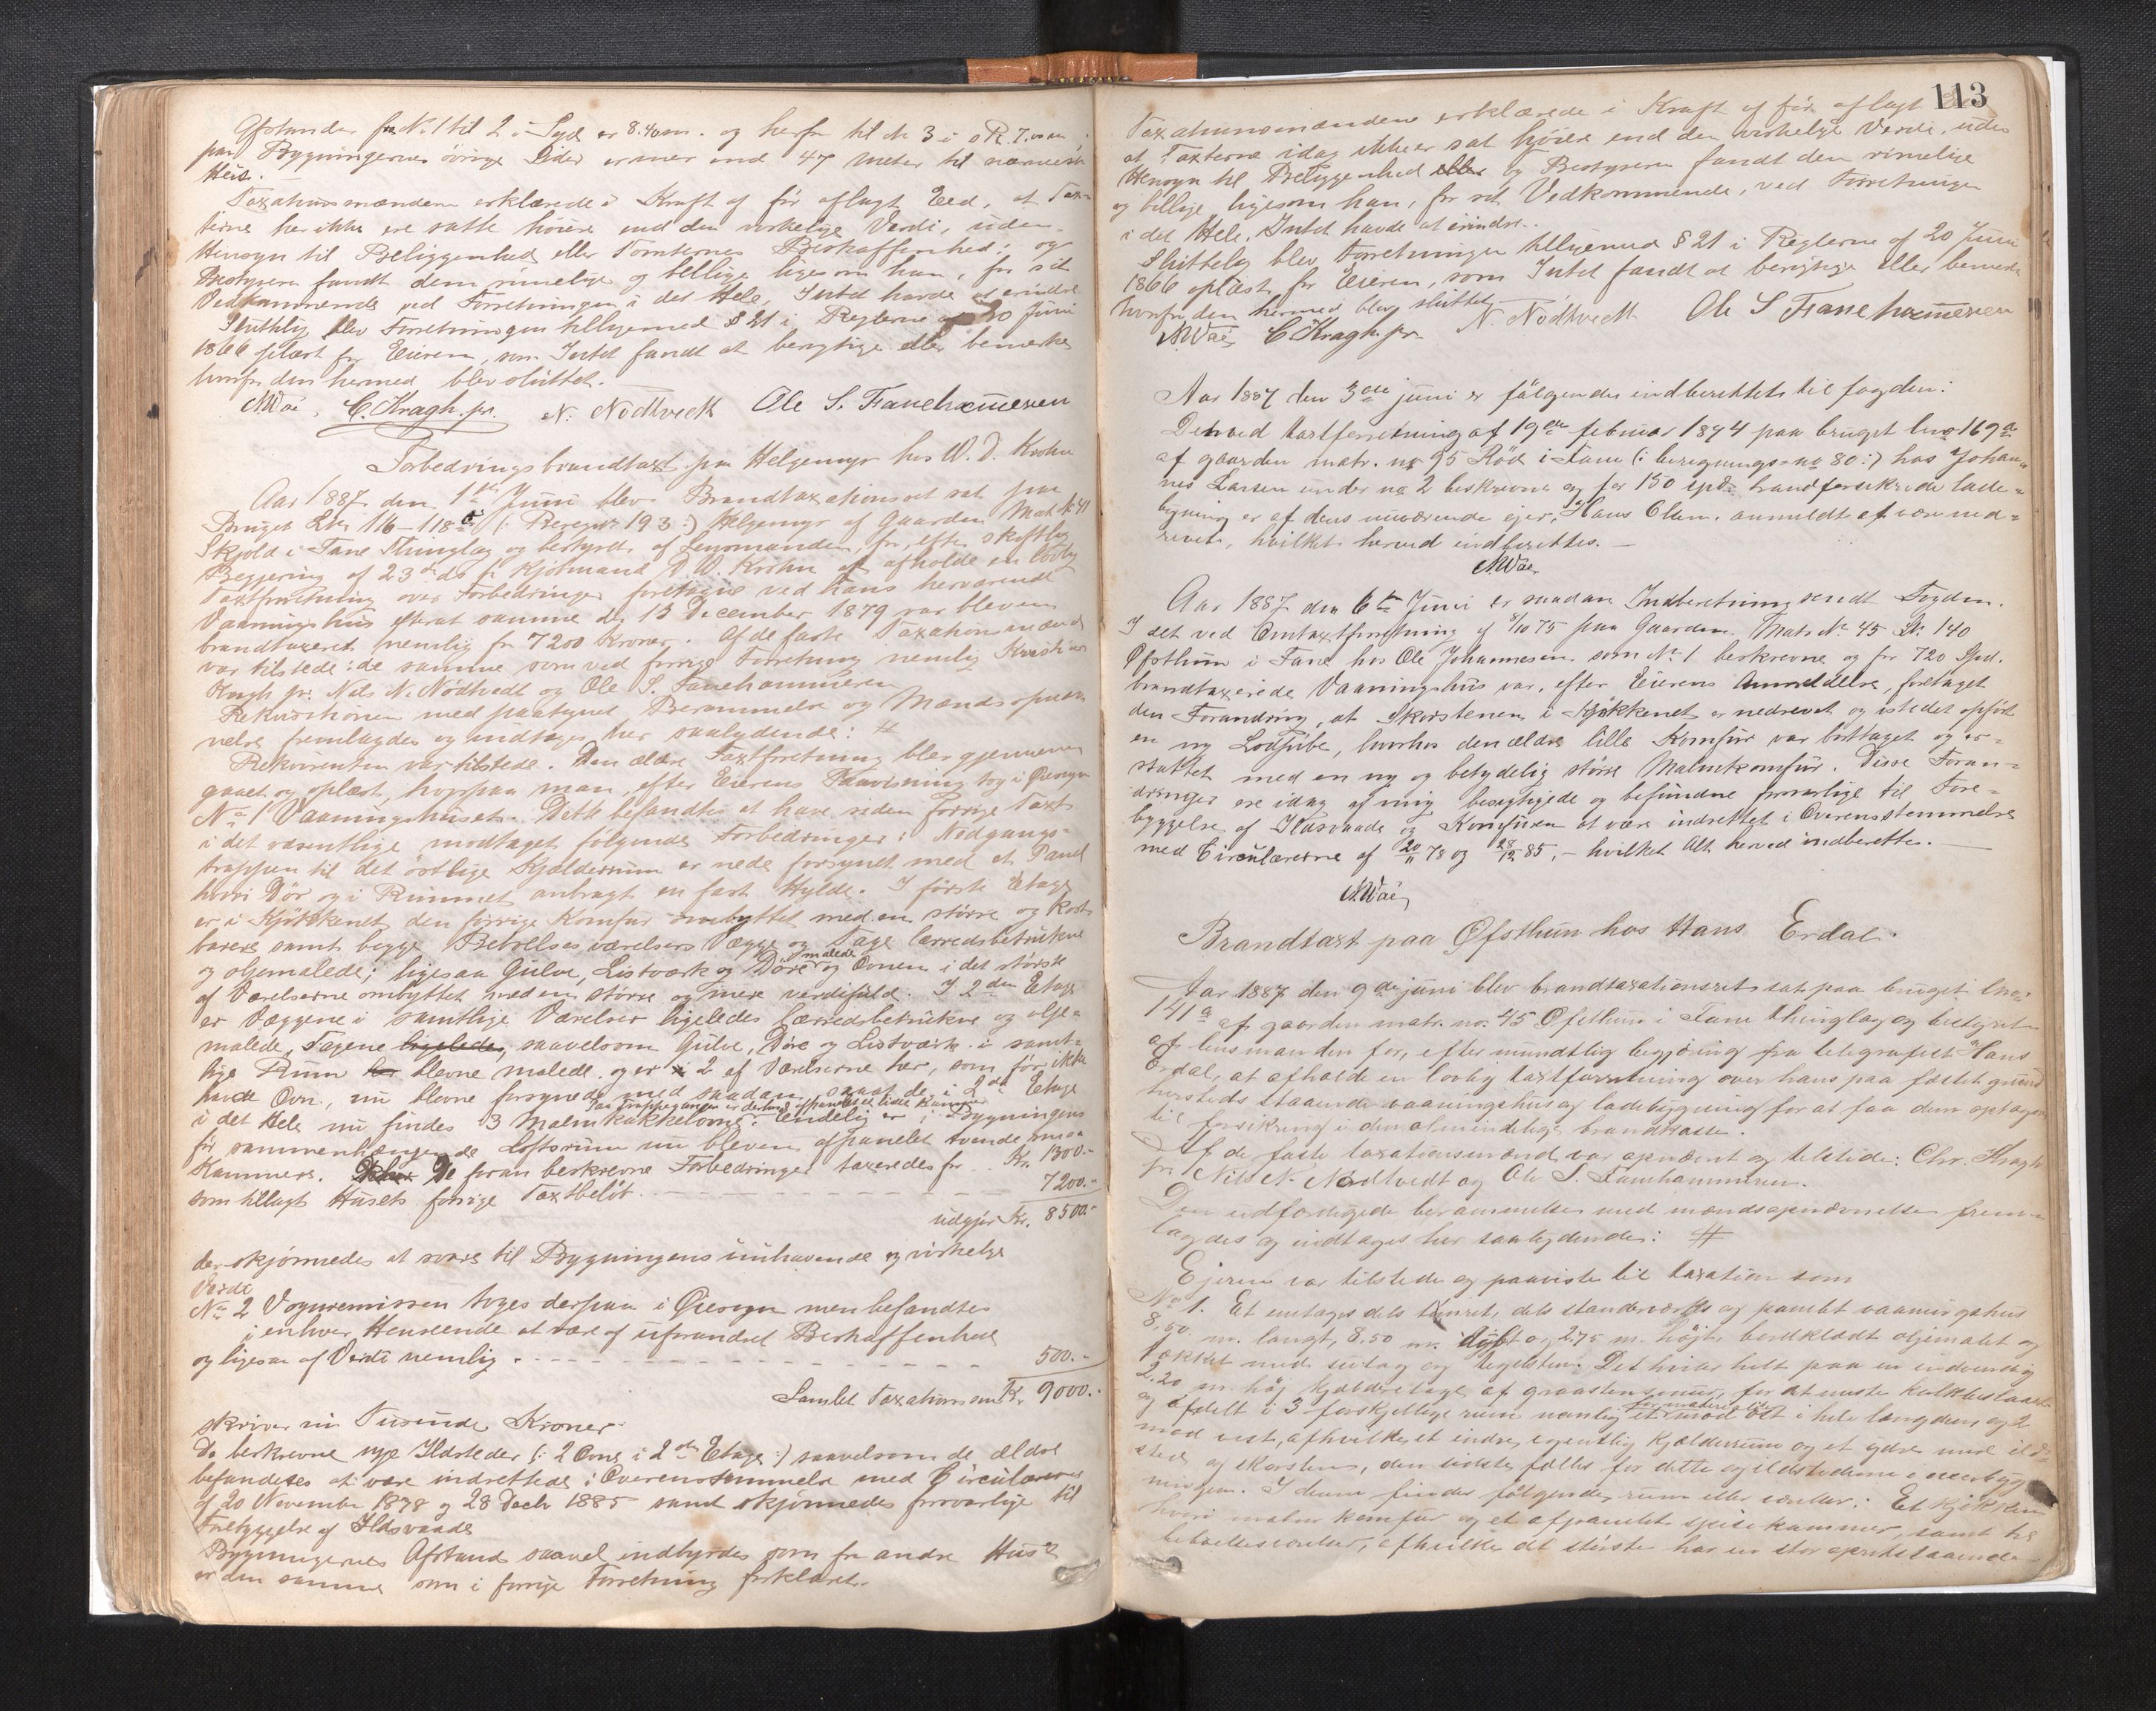 Afstanden fra No 1 til 2 i Syd er 8.40 m. og herfra til No 3 i
paa Bygningernes øvrige Sider er mer end 47 Meter til nærmeste
Hus.
Taxationsmændene erklærede i Kraft af før aflagt Eed, at Tax-
terne her ikke ere satte høiere end den virkelige Verdi, uden
Hensyn til Beliggenhed eller Tomternes Beskaffenhed; og
Bestyreren fandt dem rimelige og billige ligesom han, for sit
Vedkommende ved Forretningen i det Hele, Intet havde at erindre
Sluttelig blev Forretningen tilligemed § 21 i Reglerne af 20 Juni
1866 oplæst for Eieren, som Intet fandt at berigtige eller bemerke
hvorfor den hermed blev sluttet.
C. Kragh. pr. N. Nødtvedt Ole S. Fanehammeren
Forbedringsbrandtaxt paa Helgemyr hos W. D. Krohn
Aar 1887 den 1ste Juni blev Brandtaxationsret sat paa
Bruget Lbn 116-118 (: Beregn: 193 :) Helgemyr af Gaarden Mat No 41
Skjold i Fane Thinglag og bestyret af Lensmanden, for, efter skriftlig
Begjering af 23de ds fra Kjøbmand W. D. Krohn at afholde en lovlig
Taxtforretning over Forbedringer foretagne ved hans herværende
Vaaningshus efterat samme dg 15 December 1879 var bleven
brandtaxeret nemlig for 7200 Kroner. Af de faste Taxationsmænd
var tilstede: de samme som ved forrige Forretning nemlig Kristian
Kragh pr. Nels N. Nødtvedt og Ole S. Fanehammeren
Rekvisitionen med paategnet Berammelse og Mændsopnæv-
nelse fremlagdes og indtages her saalydende: #
Rekvirenten var tilstede. Den ældre Taxtforretning blev gjennem-
gaaet og oplæst, hvorpaa man, efter Eierens Paavisning tog i Øiesyn
No 1 Vaaningshuset. Dette befandtes at have siden forrige Taxt
i det væsentlige modtaget følgende Forbedringer: Nedgangs-
trappen til det østlige Kjælderrum er nede forsynet med et Panel
hvori Dør og i Rummet anbragt en fast Hylde. I første Etage
er i Kjøkkenet den forrige Komfur ombyttet med en større og kost-
barere samt begge Beboelsesværelsers Vægge og Tage lærredsbetrukne
og oljemalede; ligesaa Gulve, Listværk og Døre malede og Ovnen i det største
af Værelserne ombyttet med en større og mere verdifuld. I 2den Etage
er Væggene i samtlige Værelser ligeledes lærredsbetrukne og olje-
malede, Tagene ligeledes, saavelsom Gulve, Døre og Listværk i samt-
lige Rum blevne malede og er 2 af Værelserne her, som før ikke
havde Ovn, nu blevne forsynede med saadan, saaat de i 2den Etage
i det Hele nu findes 3 Malmkakkelovne. Paa Trappegangen er derhos afpanelet et lidet Kammer Endelig er i Bygningens
før sammenhængende Loftsrum nu bleven afpanelet tvende smaa
Kammere. De foran beskrevne Forbedringer taxeredes for Kr. 1300.-
som tillagt Husets forrige Taxtbeløb 7200.-
udgjør Kr. 8500.-
der skjønnedes at svare til Bygningens iinhavende og virkelige
Verdi
No 2 Vognremissen toges derpaa i Øiesyn men befandtes
i enhver Henseende at være af uforandret Beskaffenhed
og ligesaa af Verdi nemlig 500.-
Samlet Taxationssum Kr. 9000.-
skriver ni Tusinde Kroner.
De beskrevne nye Ildsteder (: 2 Ovne i 2den Etage :) saavelsom de ældre
befandtes at være indrettede i Overensstemmelse med Circulærerne
af 20 November 1878 og 28 Decbr 1885 samt skjønnedes forsvarlige til
Forebyggelse af Ildsvaade
Bygningernes Afstand saavel indbyrdes som fra andre Huse
er den samme som i forrige Forretning forklaret.
113
Taxationsmændene erklærede i Kraft af før aflagt Eed
at Taxterne idag ikke er sat høiere end den virkelige Verdi, uden
Hensyn til Beliggenhed eller og Bestyreren fandt den rimelige
og billige ligesom han, for sit Vedkommende, ved Forretningen
i det Hele, Intet havde at erindre.
Sluttelig blev Forretningen tilligemed § 21 i Reglerne af 20 Juni
1866 oplæst for Eieren, som Intet fandt at berigtige eller bemerke
hvorfor den hermed blev sluttet.
C Kragh. pr. N. Nødtvedt Ole S Fanehammeren
Aar 1887 den 3die juni er følgende indberettet til fogden:
Den ved taxtforretning af 19de februar 1874 paa bruget lno 169a
af gaarden matr. no 95 Rød i Fane (: beregnings-no 80 :) hos Johan-
nes Larsen under no 2 beskrevne og for 150 spd. brandforsikrede lade-
bygning er af dens nuværende ejer, Hans Olsen, anmeldt at være ned-
revet, hvilket herved indberettes. —
Aar 1887 den 6te Juni er saadan Indberetning sendt Fogden.
I det ved Omtaxtforretning af 8/10 75 paa Gaarden Matr No 45 Lb 140
Øfsthun i Fane hos Ole Johannesen som No 1 beskrevne og for 720 Spd.
brandtaxerede Vaaningshus var, efter Eierens Anmeldelse, foretaget
den Forandring, at Skorstenen i Kjøkkenet er nedrevet og istedet opført
en ny Lodpibe, hvorhos den ældre lille Komfur var borttaget og er-
stattet med en ny og betydelig større Malmkomfur. Disse Foran-
dringer ere idag af mig besigtigede og befundne forsvarlige til Fore-
byggelse af Ildsvaade og Komfuren at være indrettet i Overensstemmelse
med Circulærerne af 20/11 78 og 28/12 85, - hvilket Alt herved indberettes. —
Brandtaxt paa Øfsthun hos Hans Erdal.
Aar 1887 den 9de juni blev brandtaxationsret sat paa bruget lno.
141a af gaarden matr. no. 45 Øfsthun i Fane thinglag og bestyret
af lensmanden for, efter mundtlig begjæring fra telegrafist Hans
Erdal, at afholde en lovlig taxtforretning over hans paa fæstet grund
hersteds staaende vaaningshus og ladebygning for at faa dem optagen
til forsikring i den almindelige brandkasse.
Af de faste taxationsmænd var opnævnt og tilstede: Chr. Kragh
pr. Nils N. Nødtvedt og Ole S. Fanehammeren.
Den udfærdigede berammelse med mændsopnævnelse frem-
lagdes og indtages her saalydende: #
Ejeren var tilstede og paaviste til taxation som
No 1. Et enetages dels tømret, dels standerværks og panelt vaaningshus
8,50 m. langt, 8,50 m. dybt og 2,75 m. højt, bordklædt oljemalet og
tækket med sutag og tegelsten. Det hviler helt paa en indvendig
2.20 m. høj kjælderetage af graastensmur, for det meste kalkbeslaaet
og afdelt i 3 forskjellige rum nemlig et mod øst i hele længden og 2
mod vest, afhvilke et indre, egentlig kjælderrum og et ydre med ild-
sted og skorsten, den sidste fælles for dette og ildstederne i overbyg-
ningen. I denne findes følgende rum eller værelser: Et kjøkken
hvori malm komfur og et afpanelet spisekammer, samt tre
beboelsesværelser, afhvilke det største har en stor opretstaaende